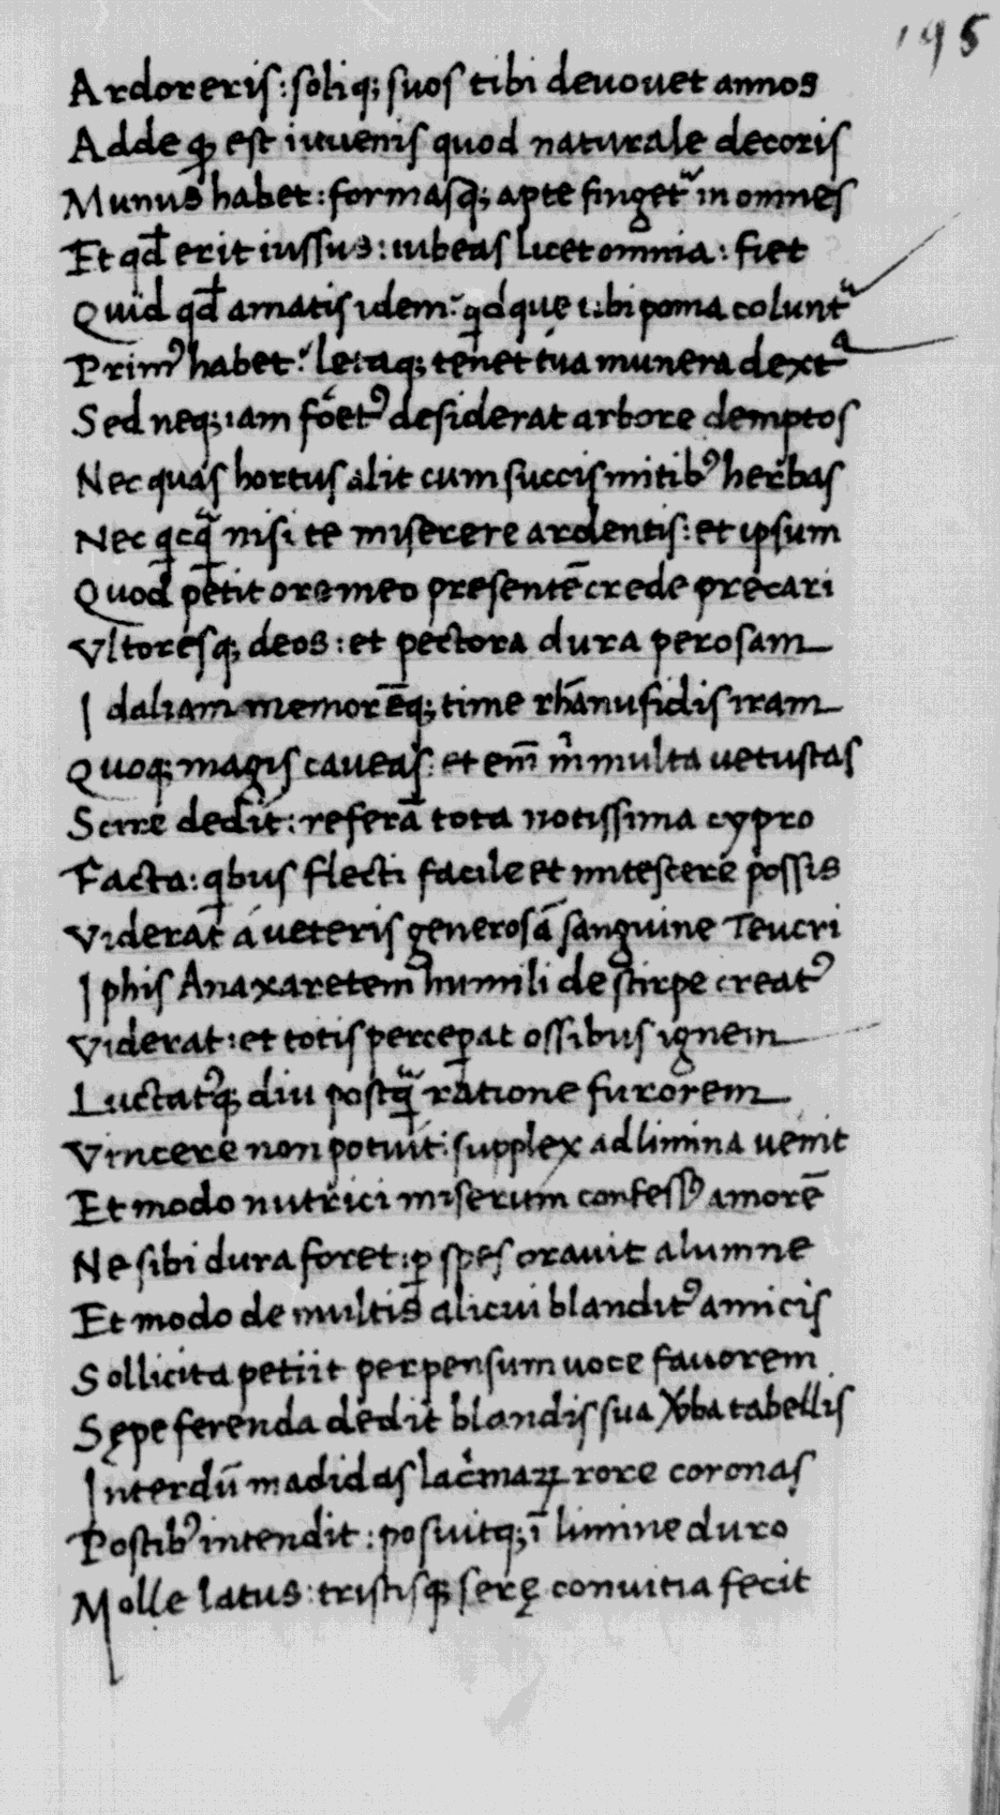 195
Ardor eris: soliq; suos tibi deuouet annos
Adde ꝙ est iuuenis quod naturale decoris
Munus habet: formasq; apte fingetᷣ in omnes
Et qđ erit iussus: iubeas licet omnia: fiet
Quid qđ amatis idem: qđ que tibi poma coluntᷣ
Primꝰ habet: letaq; tenet tua munera dextᵃ
Sed neq; iam foetꝰ desiderat arbore demptos
Nec quas hortus alit cum succis mitibꝰ herbas
Nec qͥcqᷓ nisi te miserere ardentis: et ipsum
Quod petit ore meo presentē crede precari
Vltoresq; deos: et pectora dura perosam
Idaliam memorēq; time rhānusidis iram
Quoq; magis caueas: et em̄ m̍ multa uetustas
Scire dedit: referā tota notissima cypro
Facta: qͥbus flecti facile et mitescere possis
Viderat a ueteris generosā sanguine Teucri
Iphis Anaxaretem humili de stirpe creatꝰ
Viderat: et totis percep̱at ossibus ignem
Luctatꝰq; diu postqᷓ ratione furorem
Vincere non potuit: supplex ad limina uenit
Et modo nutrici miserum confessꝰ amorē
Ne sibi dura foret: ꝑ spes orauit alumne
Et modo de multis alicui blanditꝰ amicis
Sollicita petiit perpensum uoce fauorem
Sępe ferenda dedit blandis sua ỽba tabellis
Interdū madidas lac̍maꝝ rore coronas
Postibꝰ intendit: posuitq; ī limine duro
Molle latus: tristisq; serę conuitia fecit